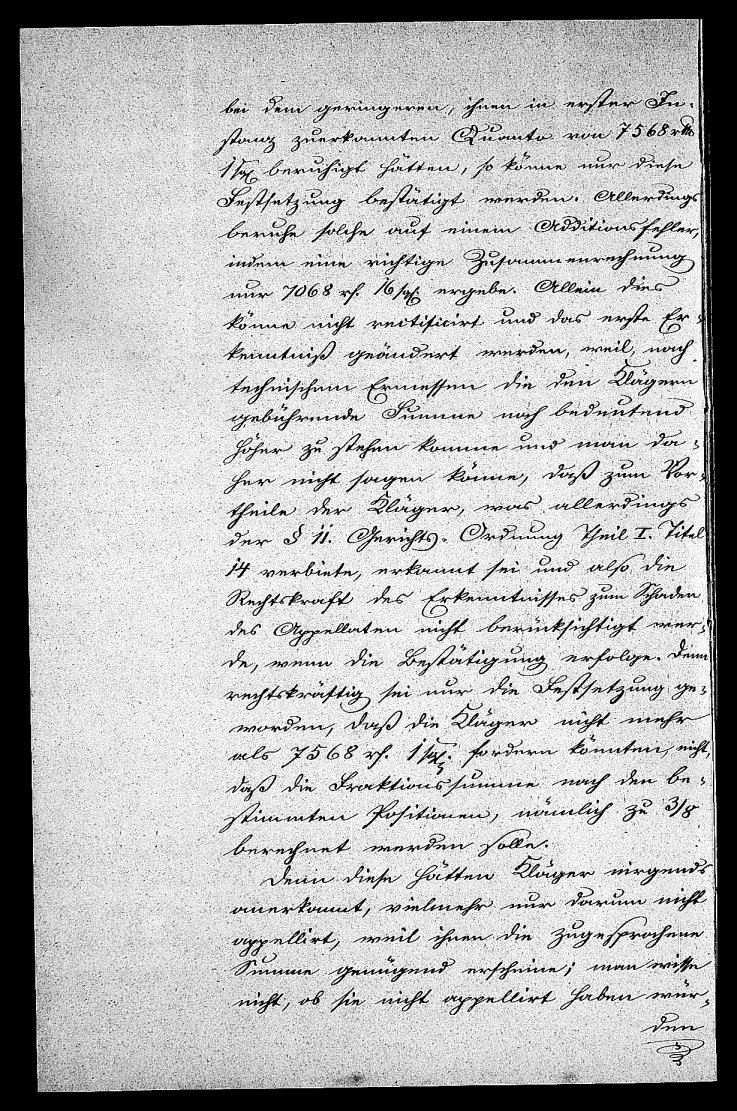 bei dem geringeren, ihnen in erster In-
stanz zuerkannten Quanto von 7568 rtl.
1 sgl. beruhigt hätten, so könne nur diese
Festsetzung bestätigt werden. Allerdings
beruhe solche auf einem Additionsfehler,
indem eine richtige Zusammenrechnung
nur 7068 rf. 16 sgl. ergebe. Allein dies
könne nicht rectificirt und das erste Er-
kenntniß geändert werden, weil, nach
technischem Ermessen die den Klägern
gebührende Summe noch bedeutend
höher zu stehen komme und man da-
her nicht sagen könne, daß zum Vor-
theile der Kläger, was allerdings
der § 11. Gerichts-Ordnung Theil I. Titel
14 verbiete, erkannt sei und also die
Rechtskraft des Erkenntnisses zum Schaden
des Appellaten nicht berücksichtigt wer-
de, wenn die Bestätigung erfolge. Denn
rechtskräftig sei nur die Festsetzung ge-
worden, daß die Kläger nicht mehr
als 7568 rf. 1 sgl. fordern könnten, nicht,
daß die Fraktionssumme nach den be-
stimmten Positionen, nämlich zu 3/8
berechnet werden solle.
Denn diese hätten Kläger nirgends
anerkannt, vielmehr nur darum nicht
appellirt, weil ihnen die zugesprochene
Summe genügend erscheine; man wisse
nicht, ob sie nicht appellirt haben wür-
den